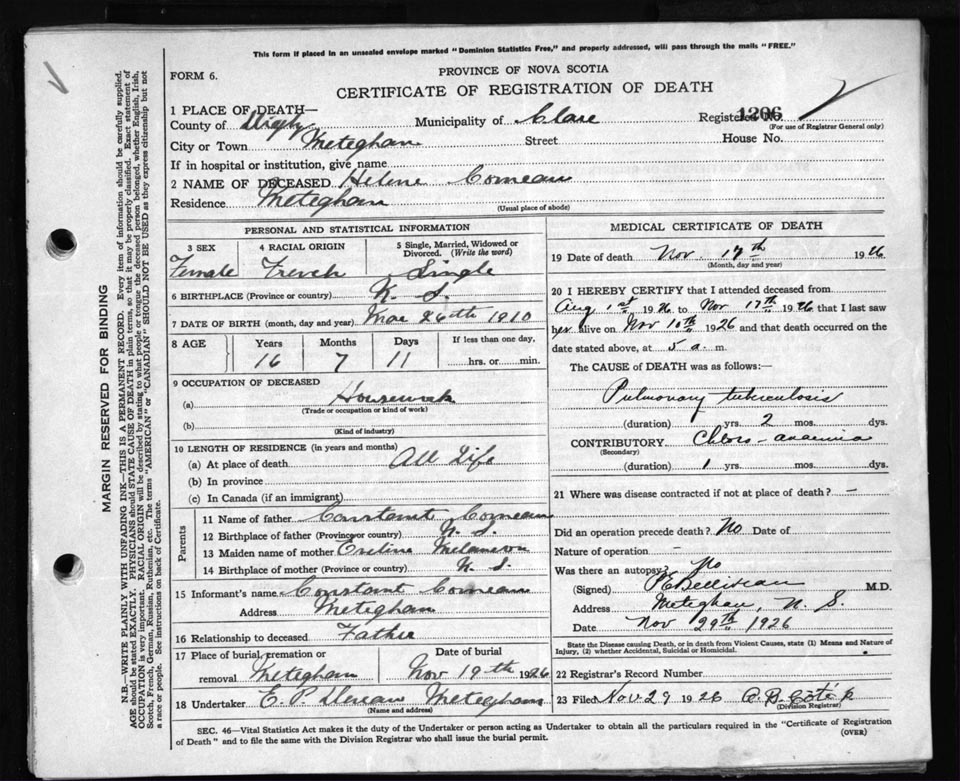 This form if placed in an unsealed envelope marked "Dominion Statistics Free," and properly addressed, will pass through the mails "FREE."
FORM 6.
PROVINCE OF NOVA SCOTIA
CERTIFICATE OF REGISTRATION OF DEATH
1 PLACE OF DEATH—
County of Digby Municipality of Clare Registered No. 1206
(For use of Registrar General only)
City or Town Meteghan Street House No.
If in hospital or institution, give name
2 NAME OF DECEASED Helene Comeau
Residence Meteghan
(Usual place of abode)
PERSONAL AND STATISTICAL INFORMATION
3 SEX 4 RACIAL ORIGIN 5 Single, Married, Widowed or Divorced. (Write the word)
Female French Single
6 BIRTHPLACE (Province or country) N. S.
7 DATE OF BIRTH (month, day and year) Mar 26th 1910
8 AGE Years Months Days If less than one day,
16 7 11 hrs. or min.
9 OCCUPATION OF DECEASED
(a) Housework
(Trade or occupation or kind of work)
(b)
(Kind of industry)
10 LENGTH OF RESIDENCE (in years and months)
(a) At place of death All Life
(b) In province
(c) In Canada (if an immigrant)
Parents
11 Name of father Constant Comeau
12 Birthplace of father (Province or country) N. S.
13 Maiden name of mother Eveline Melanson
14 Birthplace of mother (Province or country) N. S.
15 Informant's name Constant Comeau
Address Meteghan
16 Relationship to deceased Father
17 Place of burial, cremation or removal Meteghan Date of burial Nov 19th 1926
18 Undertaker E. P. Meteghan
(Name and address)
MEDICAL CERTIFICATE OF DEATH
19 Date of death Nov 17th 1926
(Month, day and year)
20 I HEREBY CERTIFY that I attended deceased from
Aug 1st 1926 to Nov 17th 1926 that I last saw
her alive on Nov 10th 1926 and that death occurred on
date stated above, at 5 a. m.
The CAUSE of DEATH was as follows:—
Pulmonary tuberculosis
(duration) yrs. 2 mos. dys.
CONTRIBUTORY Chloro-anaemia
(Secondary)
(duration) 1 yrs. mos. dys.
21 Where was disease contracted if not at place of death? —
Did an operation precede death? No Date of
Nature of operation —
Was there an autopsy? No
(Signed) P E Belliveau M.D.
Address Meteghan, N. S
Date Nov 29th 1926
State the Disease causing Death, or in death from Violent Causes, state (1) Means and Nature of
Injury, (2) whether Accidental, Suicidal or Homicidal.
22 Registrar's Record Number
23 Filed Nov 29 1926
(Division Registrar)
SEC. 46—Vital Statistics Act makes it the duty of the Undertaker or person acting as Undertaker to obtain all the particulars required in the "Certificate of Registration
of Death" and to file the same with the Division Registrar who shall issue the burial permit.
(OVER)
MARGIN RESERVED FOR BINDING
N.B.—WRITE PLAINLY WITH UNFADING INK—THIS IS A PERMANENT RECORD. Every item of information should be carefully supplied.
AGE should be stated EXACTLY. PHYSICIANS should STATE CAUSE OF DEATH in plain terms, so that it may be properly classified. Exact statement of
OCCUPATION is very important. RACIAL ORIGIN will be described by stating to what people or tongue the deceased person belonged, whether English, Irish,
Scotch, French, German, Russian, Ruthenian, etc. The terms "AMERICAN" or "CANADIAN" SHOULD NOT BE USED as they express citizenship but not
a race or people. See instructions on back of Certificate.